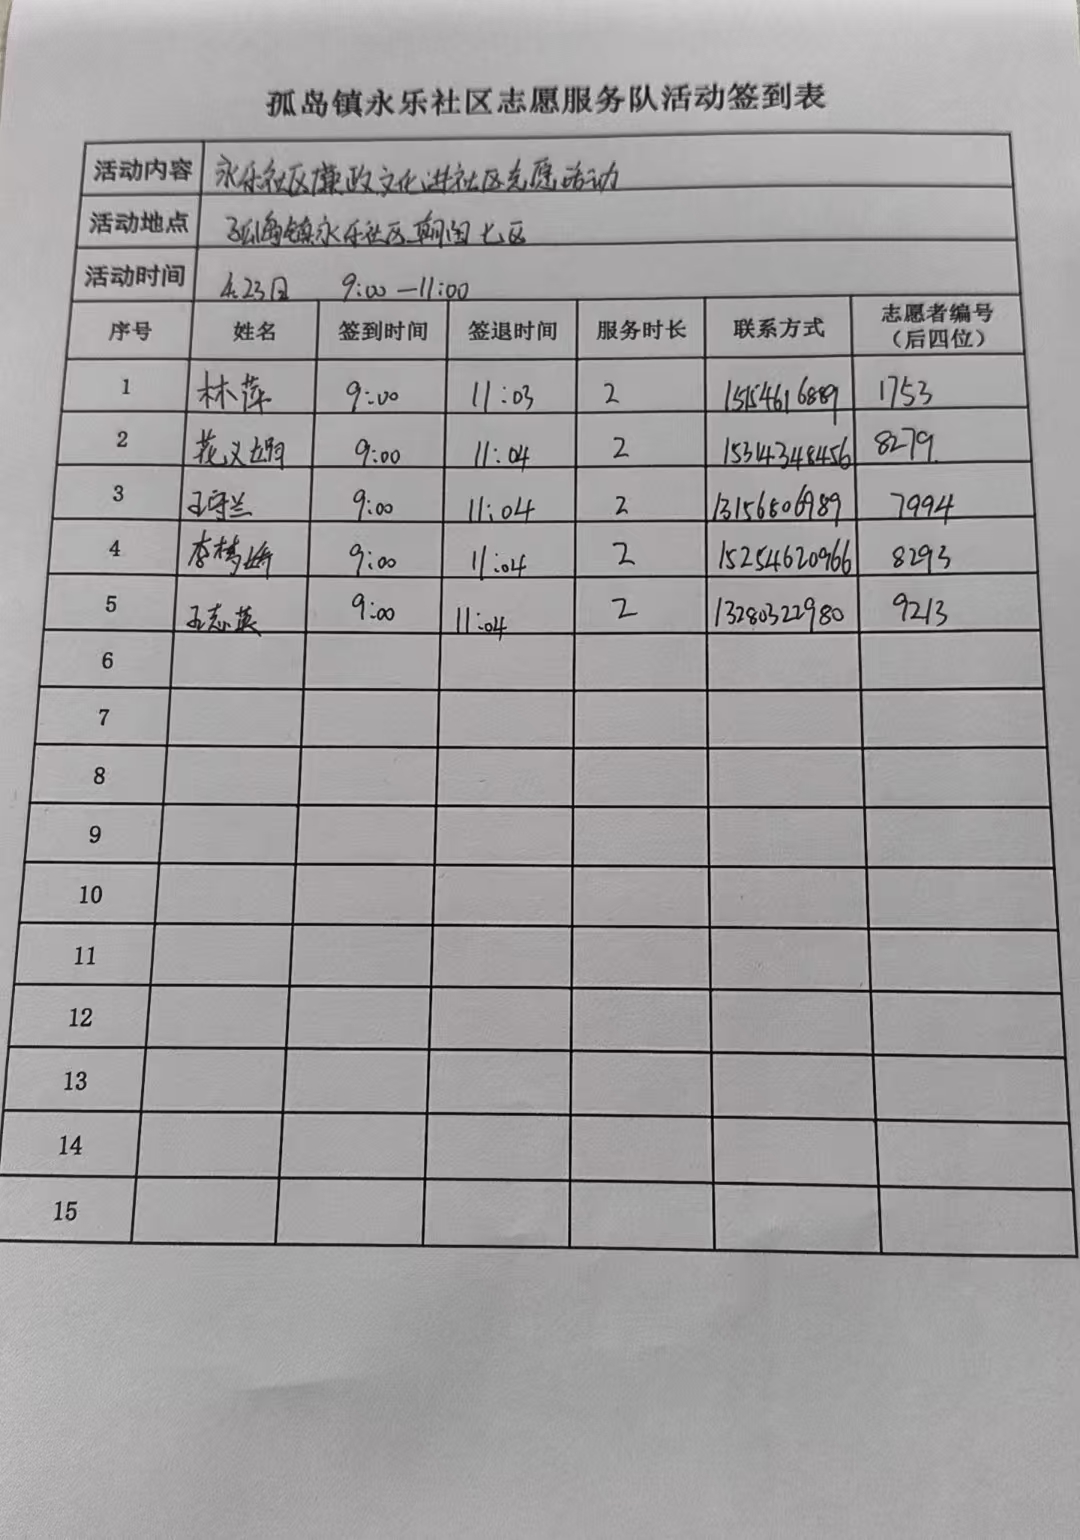 孤岛镇永乐社区志愿服务队活动签到表
活动内容 永乐社区廉政文化进社区志愿活动
活动地点 孤岛镇永乐社区朝阳七区
活动时间 4.23日 9:00—11:00
序号 姓名 签到时间 签退时间 服务时长 联系方式 志愿者编号（后四位）
1 林萍 9:00 11:03 2 15154616889 1753
2 9:00 11:04 2 15314348456 8279
3 王守兰 9:00 11:04 2 13156806989 7994
4 李梦娇 9:00 11:04 2 15254620966 8293
5 王志英 9:00 11:04 2 13280322980 9213
6
7
8
9
10
11
12
13
14
15